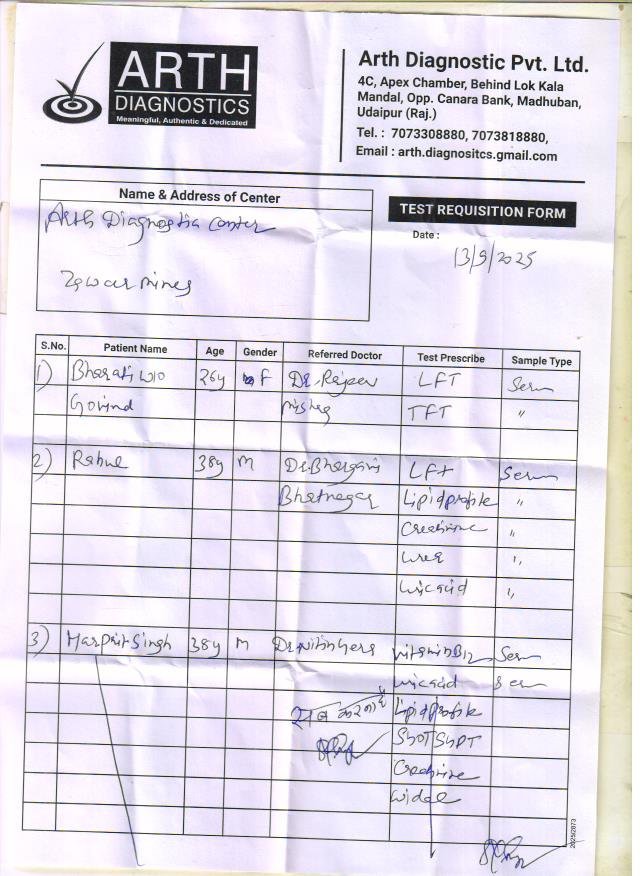 ARTH
DIAGNOSTICS
Meaningful, Authentic & Dedicated
Arth Diagnostic Pvt. Ltd.
4C, Apex Chamber, Behind Lok Kala
Mandal, Opp. Canara Bank, Madhuban,
Udaipur (Raj.)
Tel. : 7073308880, 7073818880,
Email : arth.diagnositcs.gmail.com
Name & Address of Center
Arth Diagnostic Center
Zawar mines
TEST REQUISITION FORM
Date :
13/9/2025
S.No. Patient Name Age Gender Referred Doctor Test Prescribe Sample Type
1) Bharati w/o 26y F Dr. Rajeev LFT Serum
Govind Mishra TFT "
2) Rahul 38y M Dr. Bhargavi LFT Serum
Bhatnagar Lipid profile "
Creatinine "
urea "
uric acid "
3) Harprit Singh 38y M Dr. Nitin Vitamin B12 Serum
uric acid Serum
Lipid profile
SGOT SGPT
Creatinine
widal
2025/2873